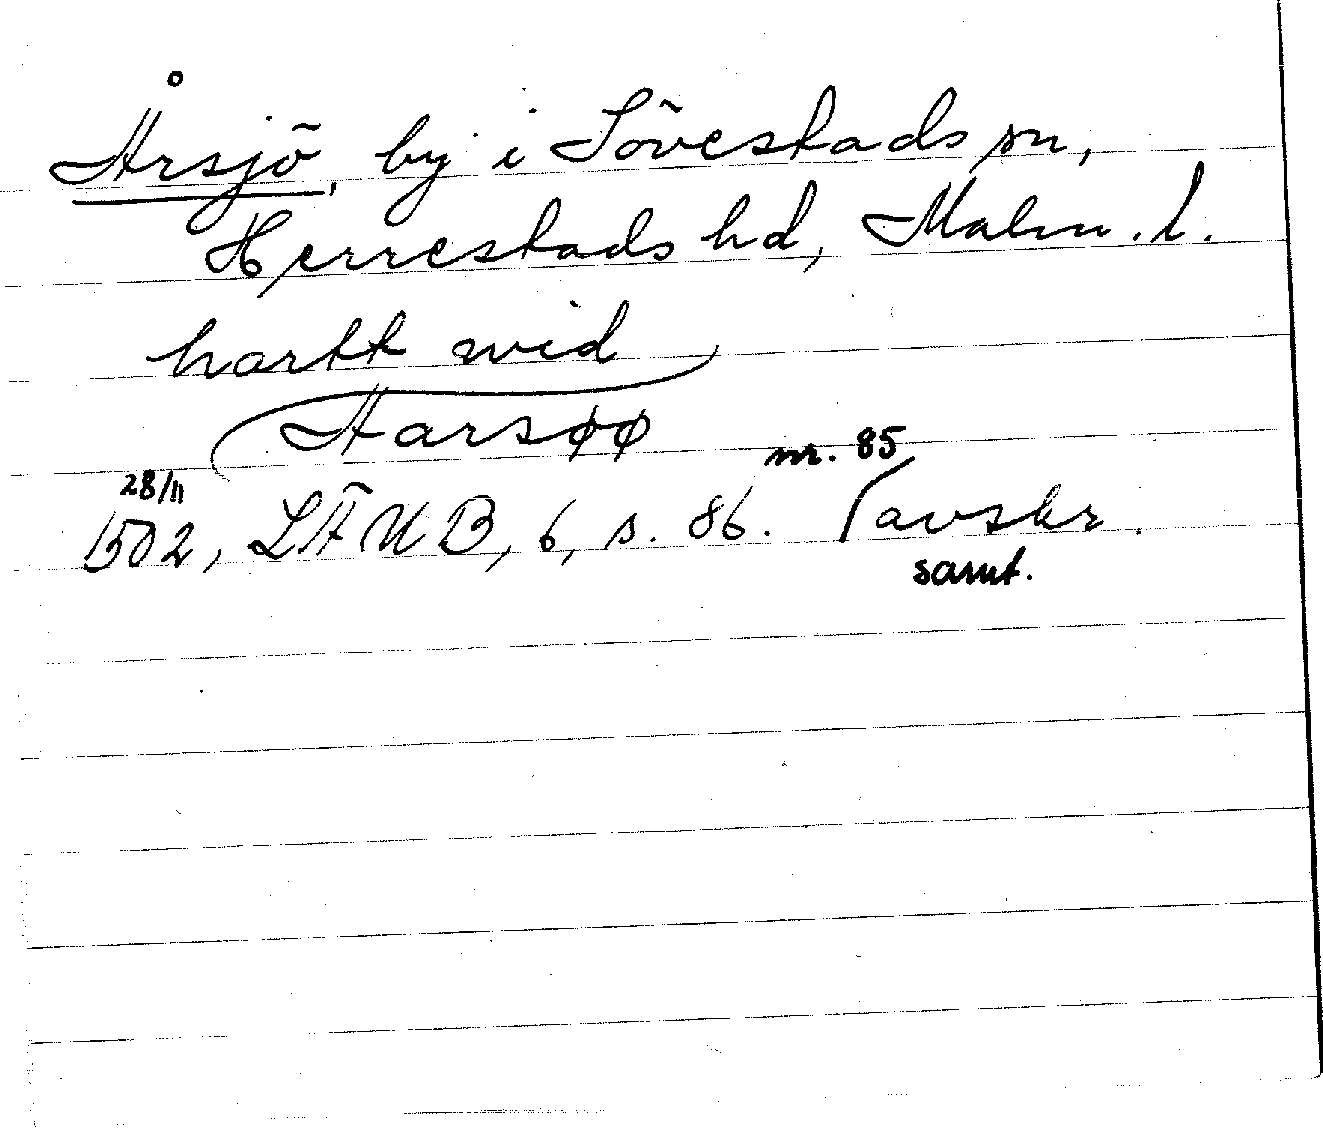 Årsjö, by i Sövestads sn,
Herrestads hd, Malm. l.
hartt wid
Aarsøø
nr. 85
28/11
1502, LÄUB, 6, s. 86. (avskr.
samt.